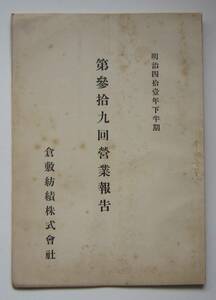 明治四拾壹年下半期
第參拾九回營業報告
倉敷紡績株式會社